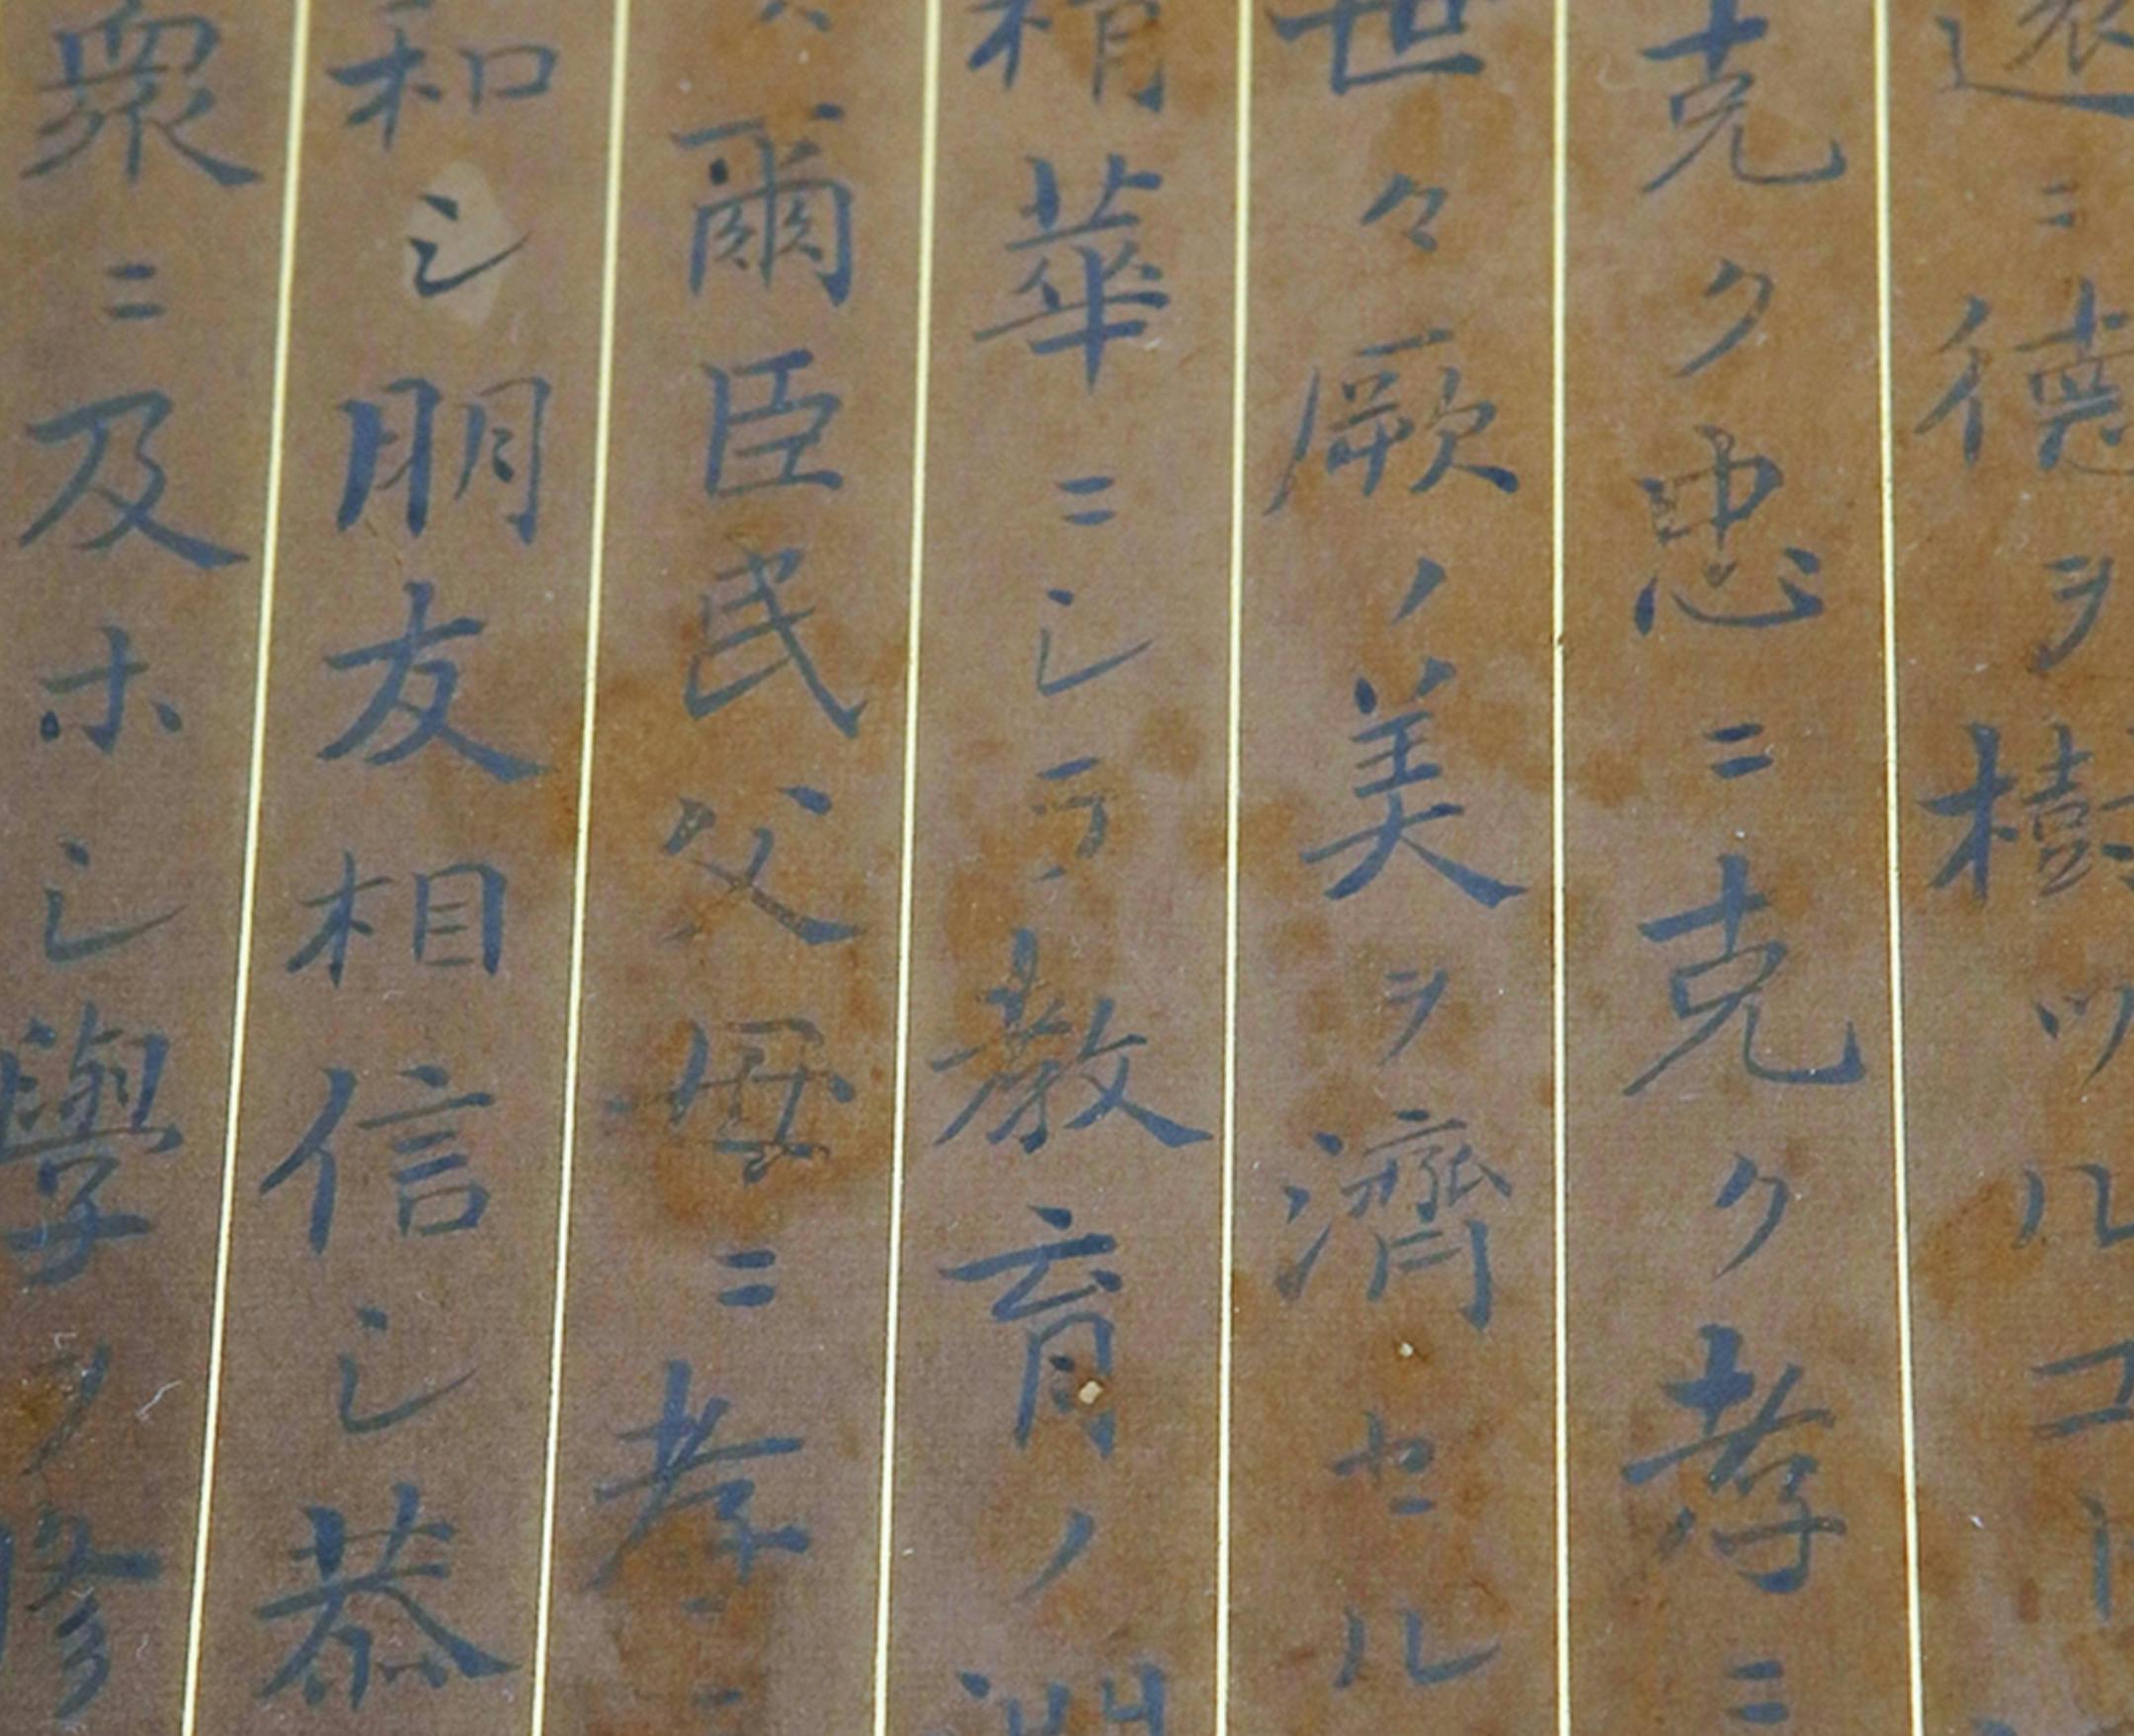 遠ニ德ヲ樹ツルコト
克ク忠ニ克ク孝ニ
世々厥ノ美ヲ濟セル
精華ニシテ教育ノ淵
爾臣民父母ニ孝ニ
和シ朋友相信シ恭
衆ニ及ホシ學ヲ修